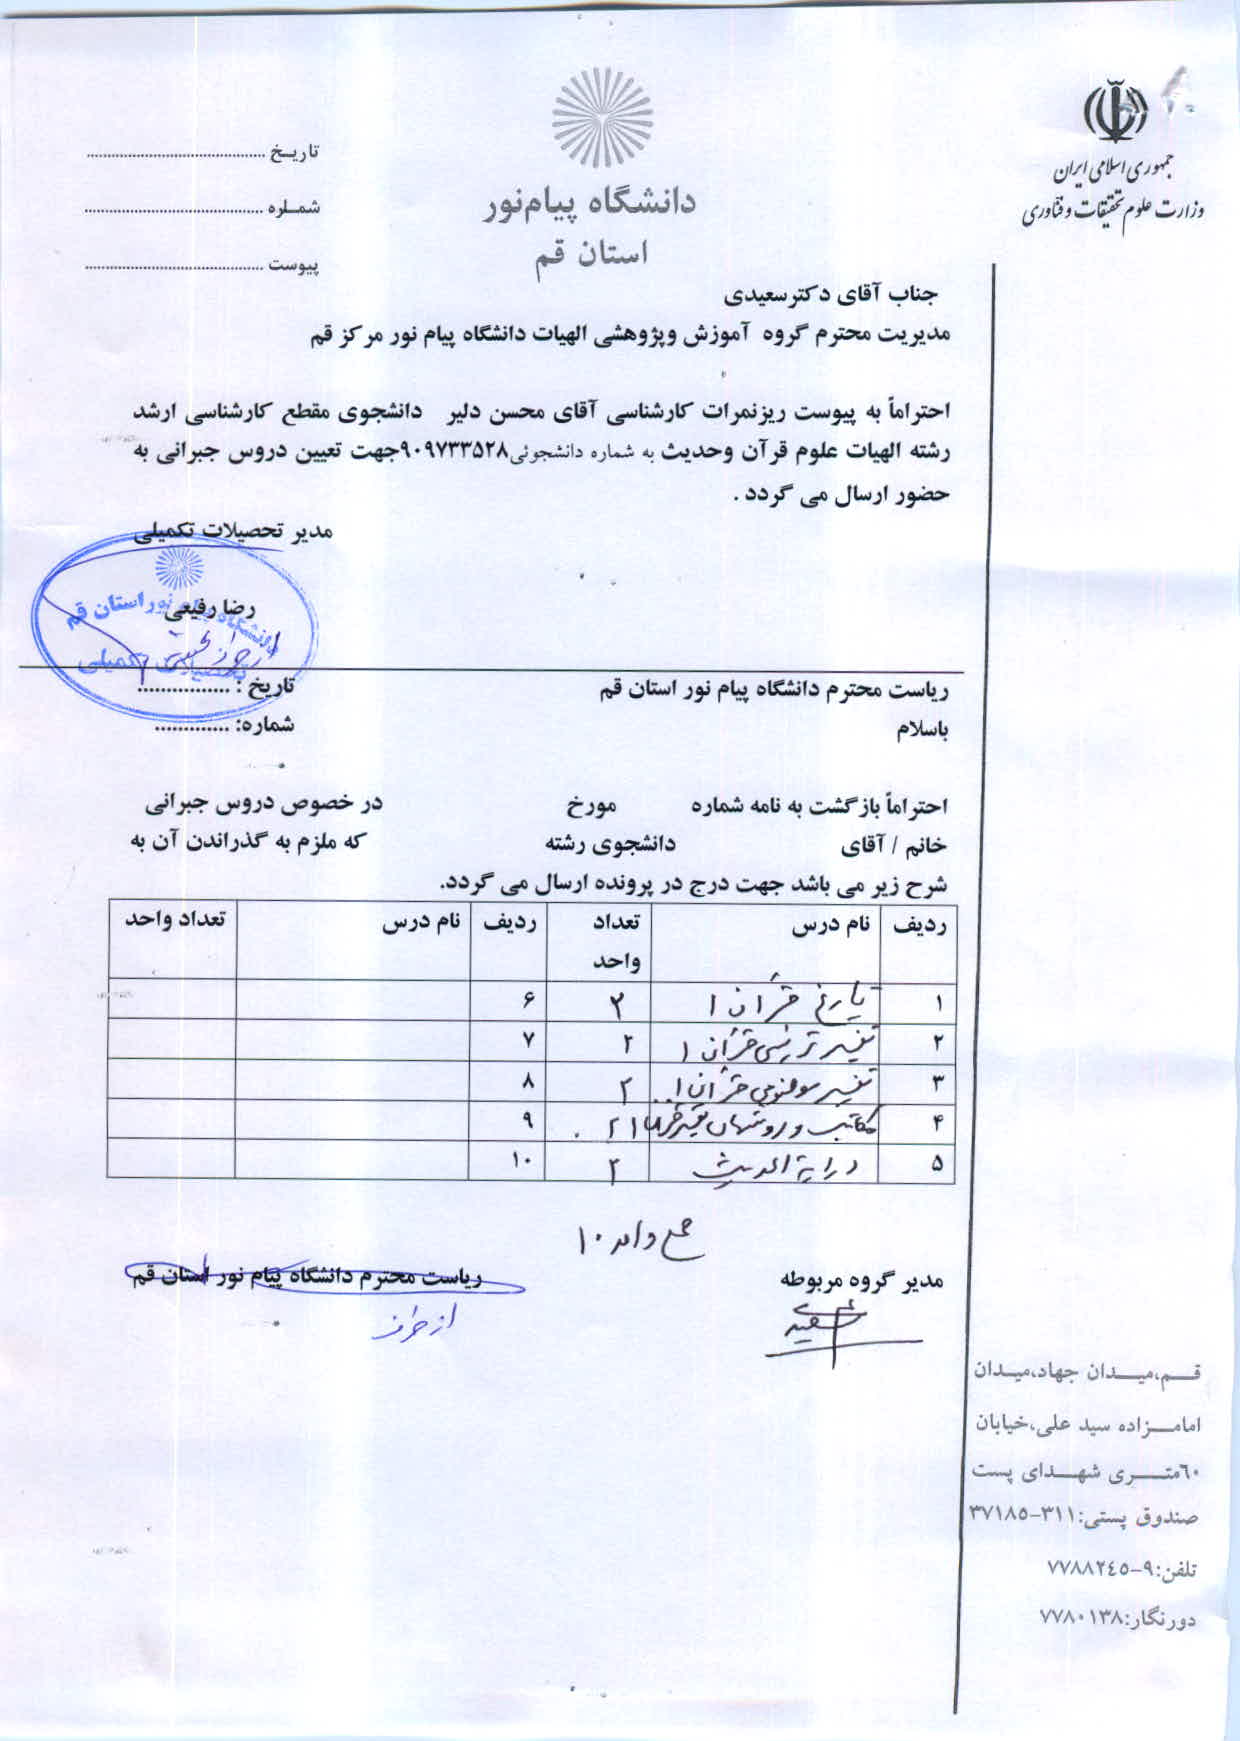 جمهوری اسلامی ایران
وزارت علوم تحقیقات و فناوری
دانشگاه پیام‌نور
استان قم
تاریخ ............................................
شماره ............................................
پیوست ............................................
جناب آقای دکترسعیدی
مدیریت محترم گروه آموزش وپژوهشی الهیات دانشگاه پیام نور مرکز قم
احتراماً به پیوست ریزنمرات کارشناسی آقای محسن دلیر دانشجوی مقطع کارشناسی ارشد
رشته الهیات علوم قرآن وحدیث به شماره دانشجوئی۹۰۹۷۳۳۵۲۸جهت تعیین دروس جبرانی به
حضور ارسال می گردد .
مدیر تحصیلات تکمیلی
رضا رفیعی
دانشگاه پیام نور استان قم
تحصیلات تکمیلی
ریاست محترم دانشگاه پیام نور استان قم
تاریخ : ................
باسلام
شماره: .............
احتراماً بازگشت به نامه شماره مورخ در خصوص دروس جبرانی
خانم / آقای دانشجوی رشته که ملزم به گذراندن آن به
شرح زیر می باشد جهت درج در پرونده ارسال می گردد.
ردیف نام درس تعداد واحد ردیف نام درس تعداد واحد
۱ تاریخ قرآن ۱ ۲ ۶
۲ تفسیر ترتیبی قرآن ۱ ۲ ۷
۳ تفسیر موضوعی قرآن ۱ ۲ ۸
۴ مکاتب و روشهای تفسیر قرآن ۱ ۲ ۹
۵ درایة الحدیث ۲ ۱۰
جمع واحد ۱۰
مدیر گروه مربوطه
سعیدی
ریاست محترم دانشگاه پیام نور استان قم
از طرف
قم،میدان جهاد،میدان
امامزاده سید علی،خیابان
۶۰متری شهدای پست
صندوق پستی:۳۱۱-۳۷۱۸۵
تلفن:۹-۷۷۸۸۲٤۵
دورنگار:۷۷۸۰۱۳۸